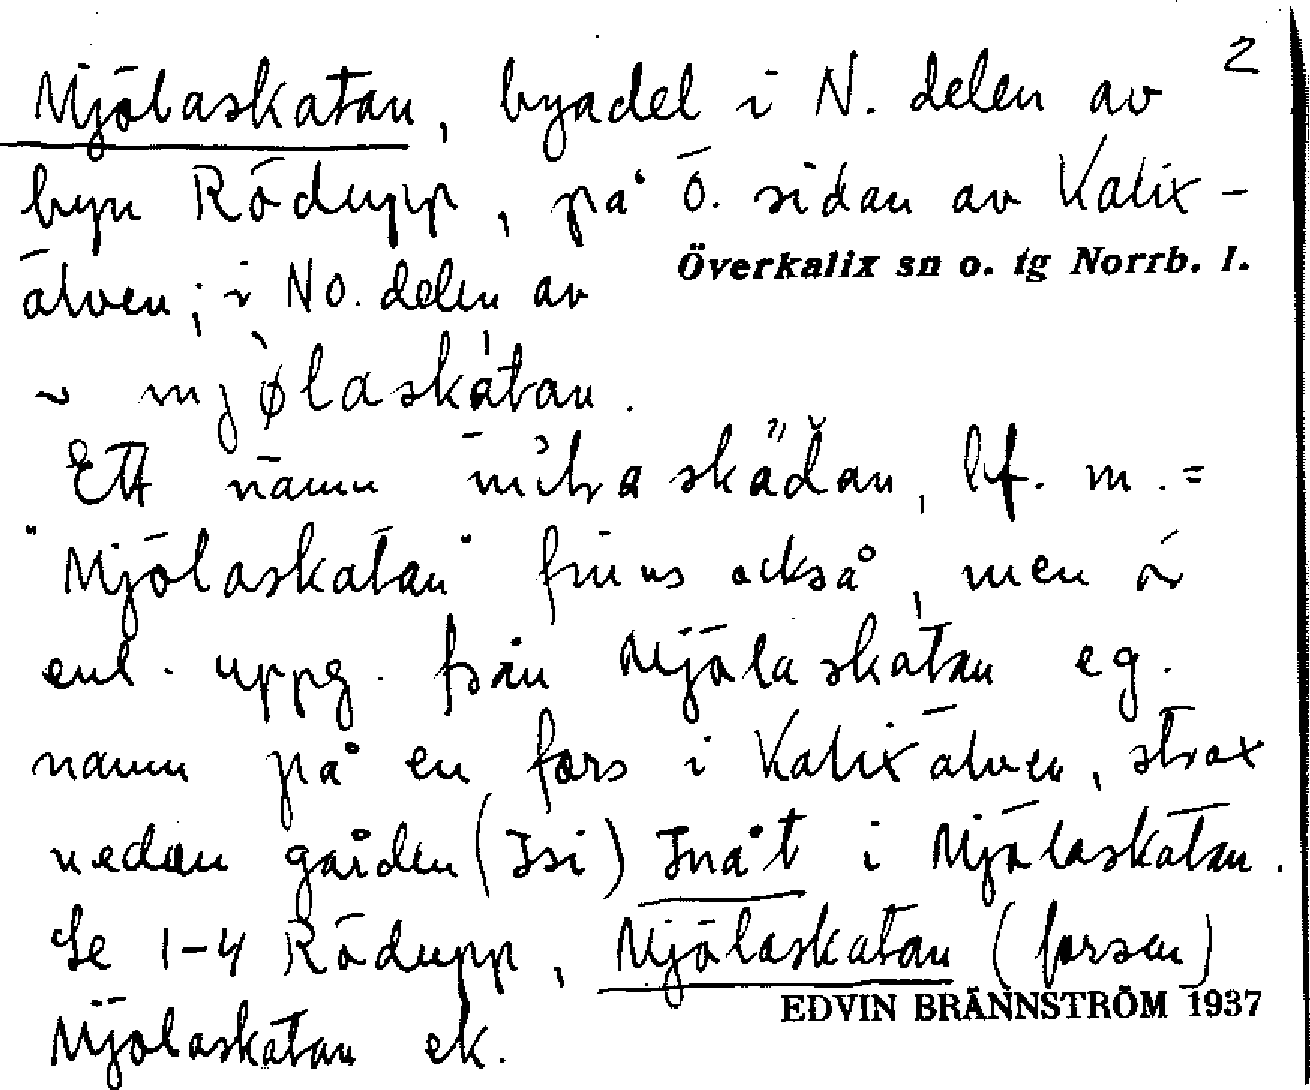 2
Mjölaskatan, byadel i N. delen av
byn Rödupp, på ö. sidan av Kalix-
Överkalix sn o. tg Norrb. l.
älven; i NO. delen av
~ mjølaskatan.
Ett namn skädan, bf. m. =
"Mjölaskatan" finns också, men är
enl. uppg. från Mjölaskatan eg.
namn på en fors i Kalixälven, strax
nedan gården (Isi) Inåt i Mjölaskatan.
Se 1-4 Rödupp, Mjölaskatan (forsen)
EDVIN BRÄNNSTRÖM 1937
Mjölaskatan ek.